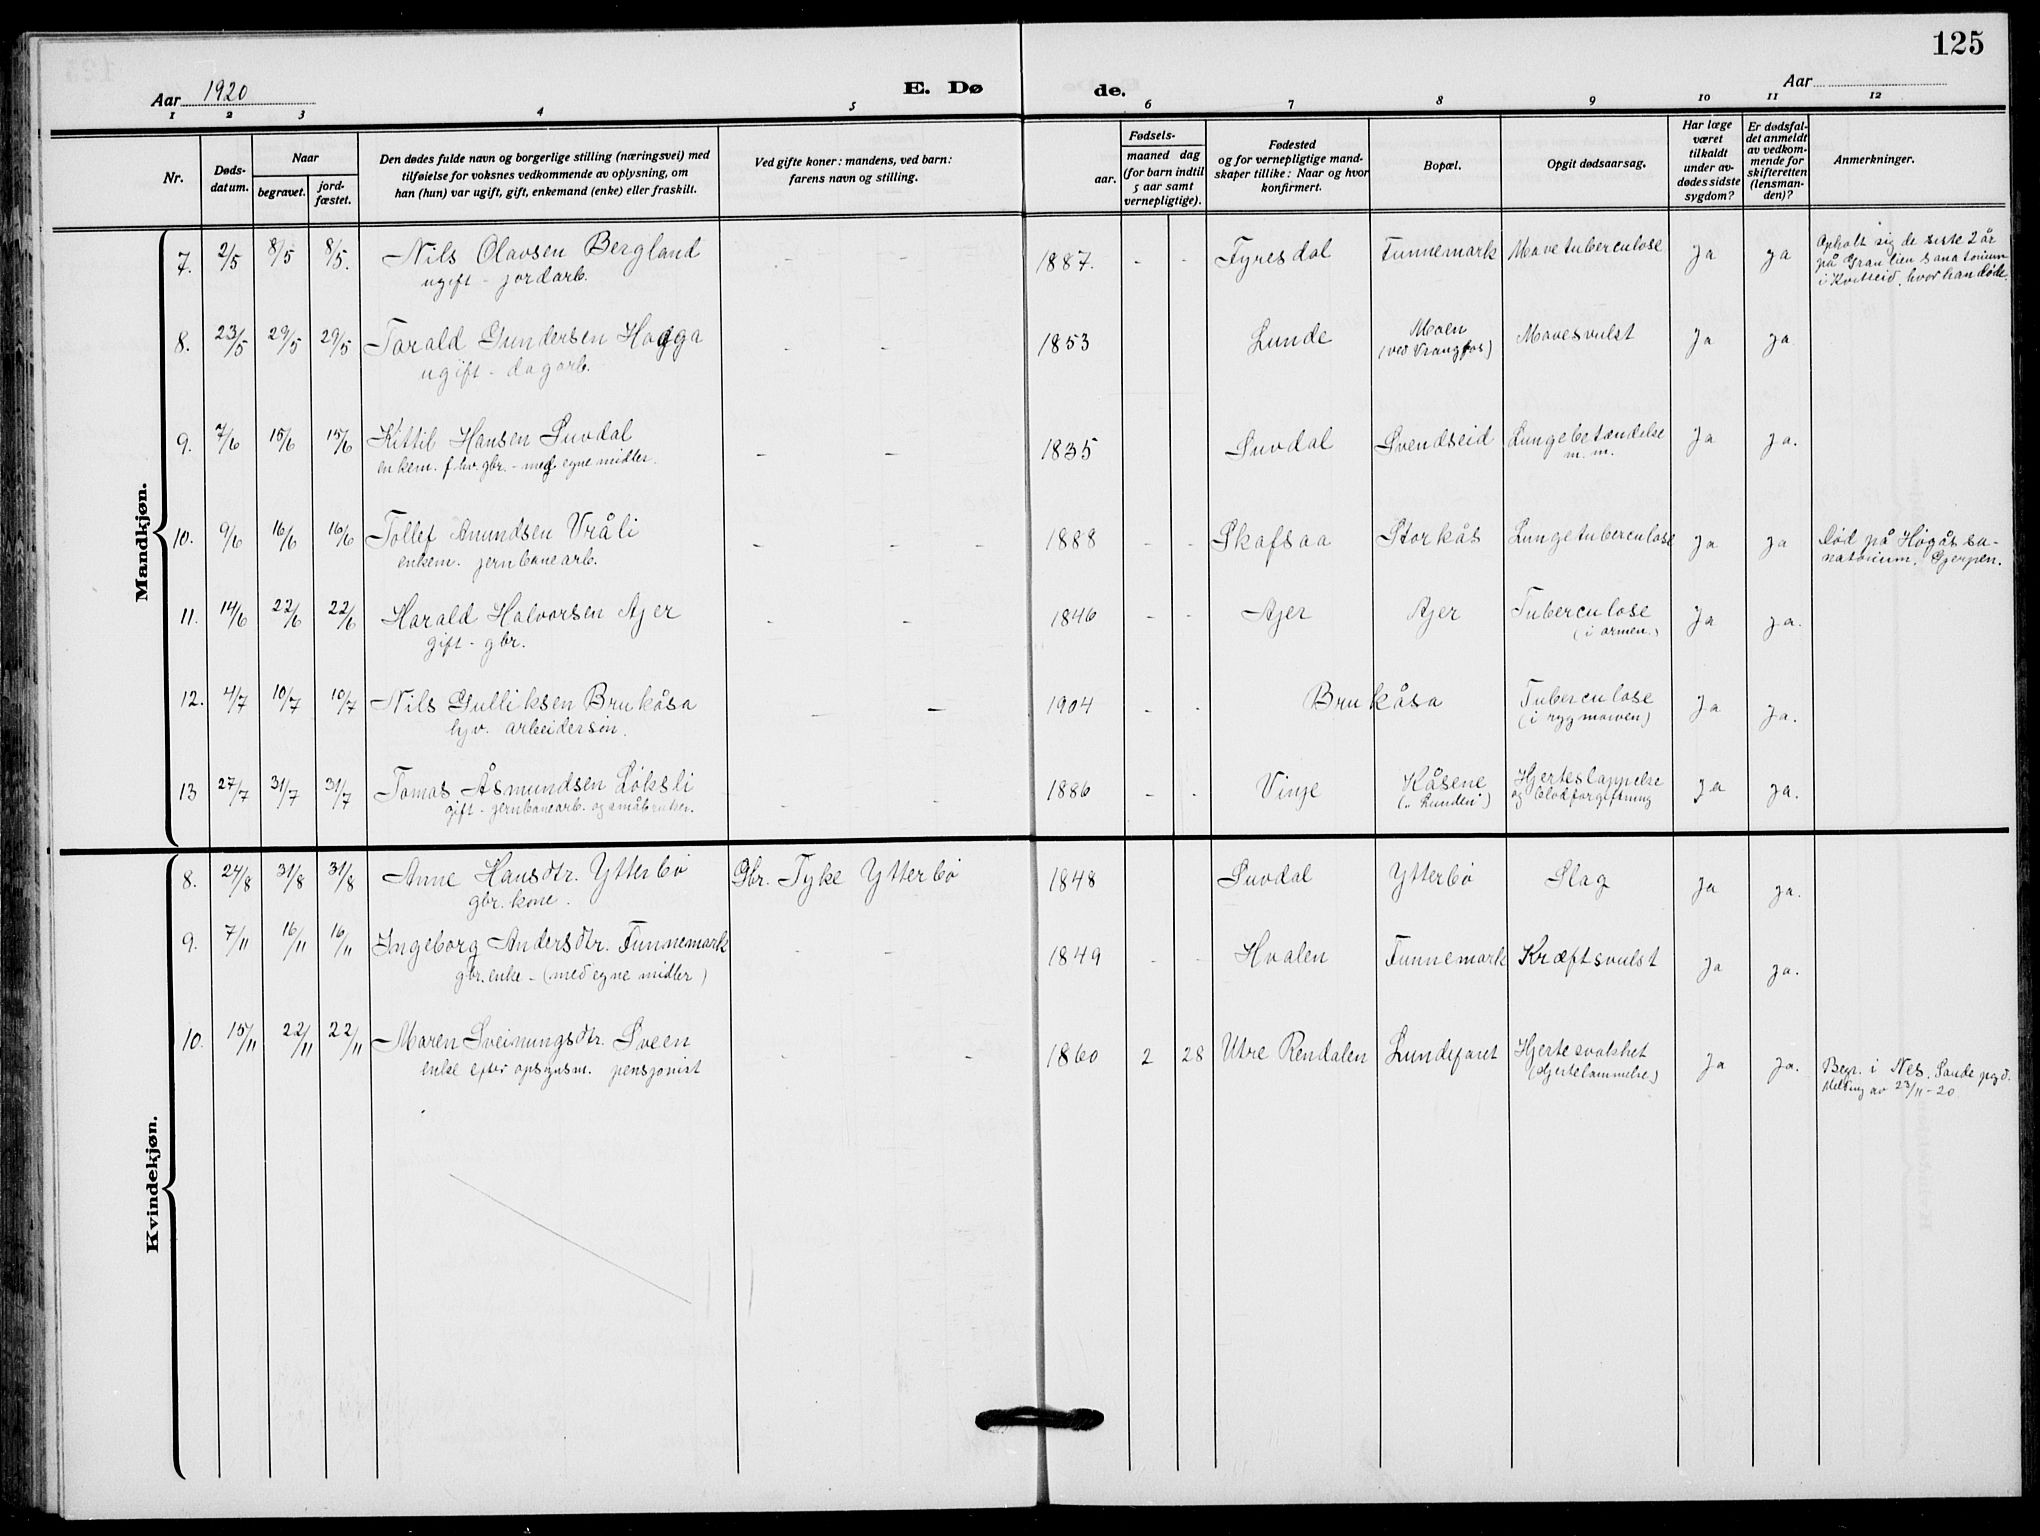 125
Aar 1920
E. Døde.
Aar
1 2 3 4 5 6 7 8 9 10 11 12
Nr.
Døds-
datum.
Naar
begravet.
jord-
fæstet.
Den dødes fulde navn og borgerlige stilling (næringsvei) med
tilføielse for voksnes vedkommende av oplysning, om
han (hun) var ugift, gift, enkemand (enke) eller fraskilt.
Ved gifte koner: mandens, ved barn:
farens navn og stilling.
Fødsels-
aar.
maaned dag
(for barn indtil
5 aar samt
vernepligtige).
Fødested
og for vernepligtige mand-
skaper tillike: Naar og hvor
konfirmert.
Bopæl.
Opgit dødsaarsag.
Har læge
været
tilkaldt
under av-
dødes sidste
sygdom?
Er dødsfal-
det anmeldt
av vedkom-
mende for
skifteretten
(lensman-
den)?
Anmerkninger.
Mandkjøn.
7. 2/5 8/5 8/5. Nils Olavsen Bergland - - 1887. - - Fyresdal Funnemark Mavetuberculose Ja ja Opholt sig de siste 2 år
ugift - jordarb. på Granlien Sanatorium
i Kviteseid, hvor han døde.
8. 23/5 29/5 29/5 Torald Gundersen Hogga - - 1853 Lunde Moen Mavesvulst Ja ja
ugift - dagarb. (ved Vrangfos)
9. 7/6 15/6 15/6 Kittil Hansen Suvdal - - 1835 Suvdal Svendseid Lungebetændelse Ja ja.
enkem. f.hv. gbr. - med egne midler. m. m.
10. 9/6 16/6 16/6 Tollef Amundsen Vråli - - - 1888 - - Skafsaa Storkås Lungetuberculose Ja ja Død på Högås sa-
enkem. jernbanearb. natorium, Gjerpen.
11. 14/6 22/6 22/6 Harald Halvorsen Ajer - - 1846 - - Ajer Ajer Tuberculose Ja ja.
gift - gbr. (i armen.)
12. 4/7 10/7 10/7 Nils Gulliksen Brukåsa - - 1904 - - Brukåsa Tuberculose Ja ja.
hjv. arbeidersön. (i rygmarven)
13 27/7 31/7 31/7 Tomas Åsmundsen Löksli - - 1886 - - Vinje Kåsene Hjerteslappelse Ja ja.
gift - jernbanearb. og småbruker. (" Lunden") og blodforgiftning
Kvindekjøn.
8. 24/8 31/8 31/8 Anne Hansdtr. Ytterbö Gbr. Tyke Ytterbö 1848 Suvdal Ytterbö Slag Ja ja.
gbr. kone.
9. 7/11 16/11 16/11 Ingeborg Andersdtr. Funnemark - - 1849 - - Hvalen Funnemark Kræftsvulst Ja ja.
gbr. enke - (med egne midler)
10. 15/11 22/11 22/11 Maren Sveinungsdtr. Sveen - - - 1860 2 28 Utre Rendalen Lundefaret Hjertesvakhet Ja ja. Begr. i Nes, Saude pgd.
enke efter opsynsm. pensjonist (Hjertelammelse) Melding av 23/11-20